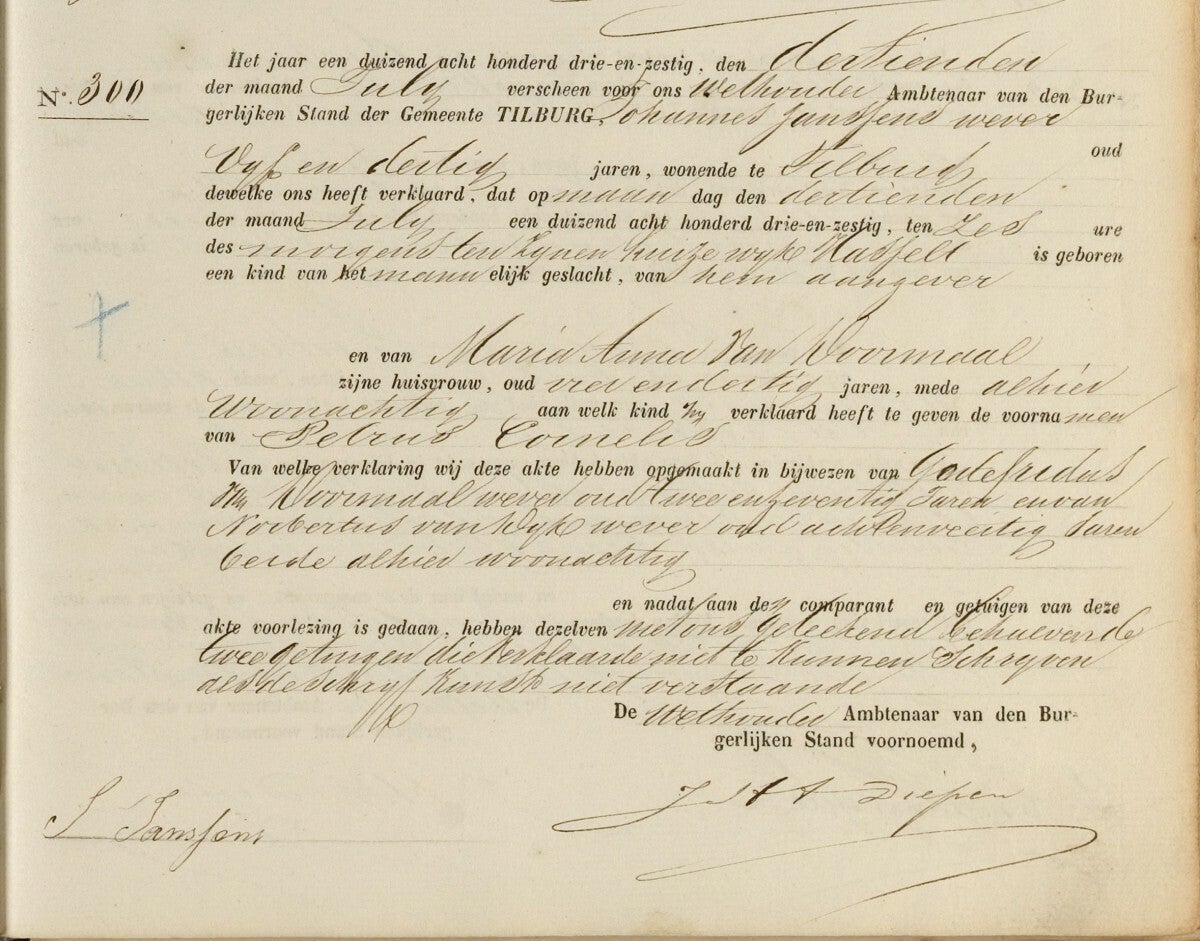 Het jaar een duizend acht honderd drie-en-zestig, den dertienden
No. 300
der maand July verscheen voor ons Wethouder Ambtenaar van den Bur-
gerlijken Stand der Gemeente TILBURG, Johannes Janssens wever
oud
Vyf en dertig jaren, wonende te Tilburg
dewelke ons heeft verklaard, dat op maan dag den dertienden
der maand July een duizend acht honderd drie-en-zestig, ten Zes ure
des morgens ten zynen huize wyk Hasselt is geboren
een kind van het mann elijk geslacht, van hem aangever
en van Maria Anna Van Voormaal
zijne huisvrouw, oud vier en dertig jaren, mede alhier
Woonachtig aan welk kind hy verklaard heeft te geven de voornamen
van Petrus Cornelis
Van welke verklaring wij deze akte hebben opgemaakt in bijwezen van Godefridus
Van Voormaal wever oud twee en zeventig Jaren en van
Norbertus van Dyk wever oud acht en veertig Jaren
beide alhier woonachtig
en nadat aan den comparant en getuigen van deze
akte voorlezing is gedaan, hebben dezelven met ons geteekend behalve de
twee getuigen die verklaarde niet te kunnen Schryven
als de Schryf Kunst niet verstaande
De Wethouder Ambtenaar van den Bur-
gerlijken Stand voornoemd,
Diepen
J Janssens